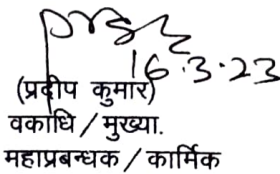 16.3.23
(प्रदीप कुमार)
वकाधि / मुख्या.
महाप्रबन्धक / कार्मिक